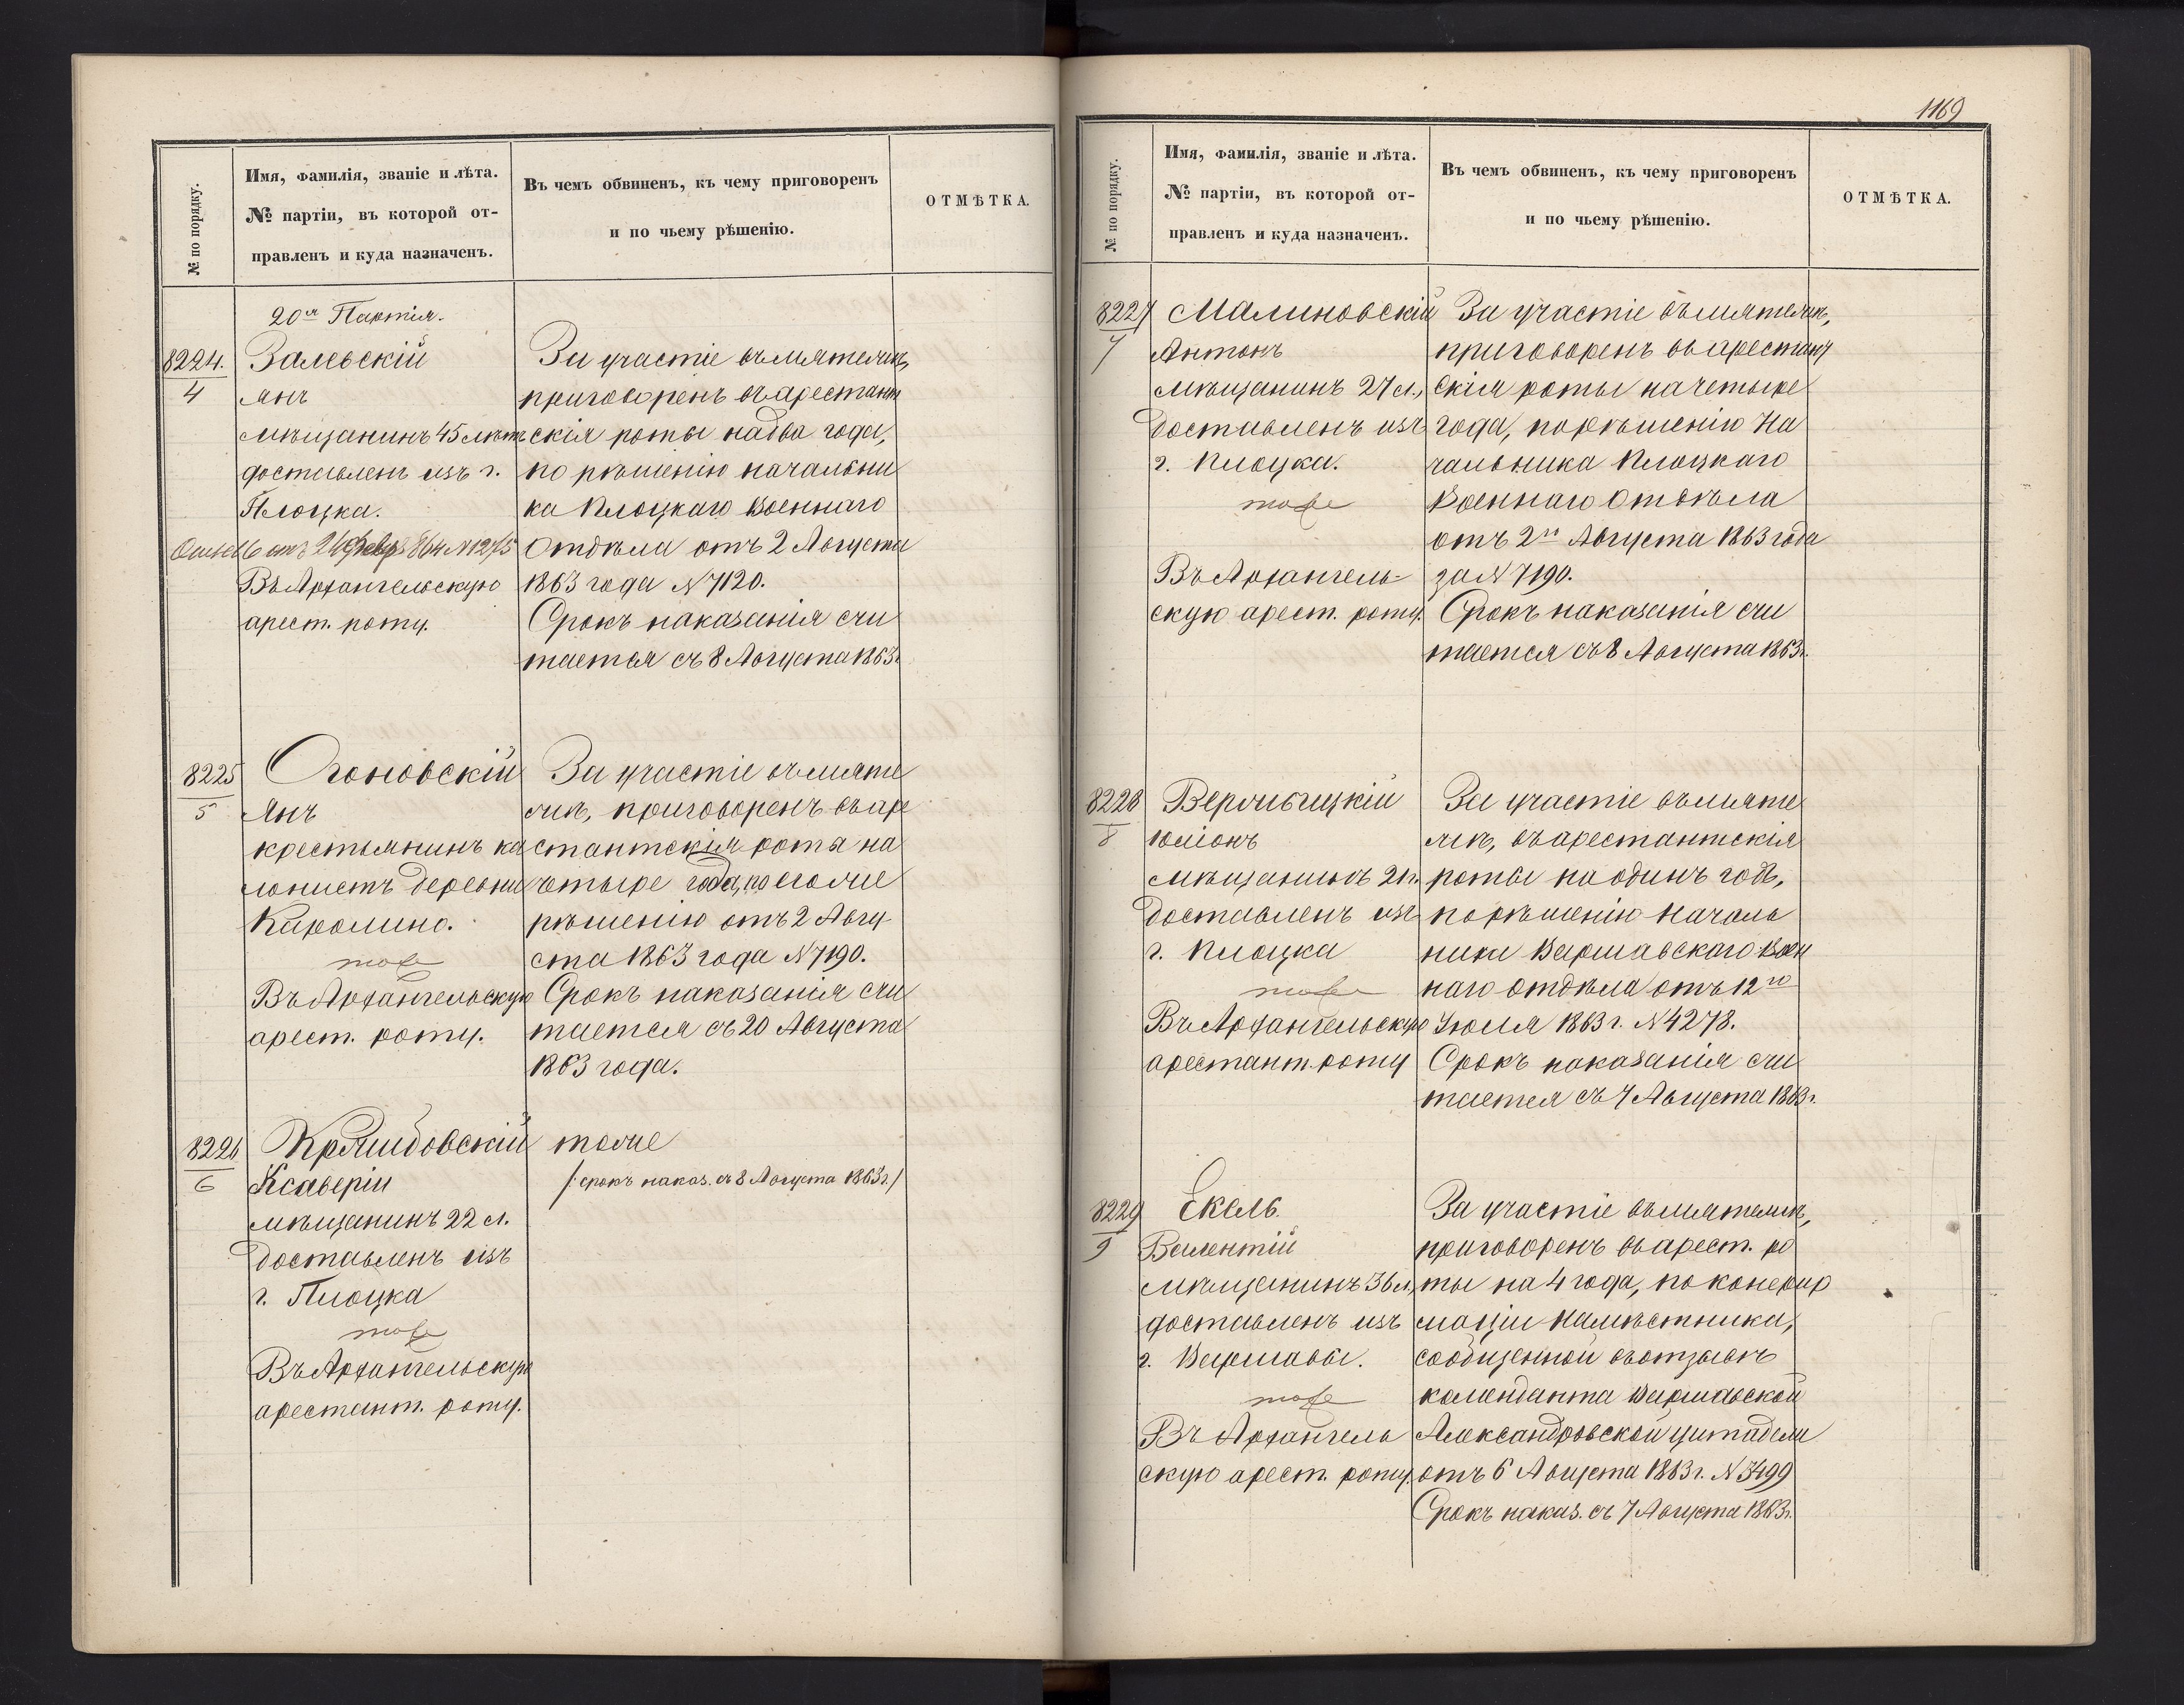 № по порядку.
Имя, фамилія, званіе и лѣта.
№ партіи, въ которой от-
правленъ и куда назначенъ.
Въ чемъ обвиненъ, къ чему приговоренъ
и по чьему рѣшенію.
ОТМѢТКА.
20я Партія.
8224.
4
Залевскій
Янъ
мѣщанинъ 45 лѣтъ
доставленъ изъ г.
Плоцка.
Въ Архангельскую
арест. роту.
За участіе въ мятежѣ,
приговоренъ въ арестант
скія роты на два года,
по рѣшенію начальни
ка Плоцкаго Военнаго
Отдѣла отъ 2 Августа
1863 года N 7120.
Срокъ наказанія счи
тается съ 8 Августа 1863г.
8225
5
Огоновскій
Янъ
крестьянинъ ка
лонистъ деревни
Каролино.
тоже
Въ Архангельскую
арест. роту.
За участіе въ мяте
жѣ, приговоренъ въ аре
стантскія роты на
четыре года, по егоже
рѣшенію отъ 2 Авгу-
ста 1863 года N 7190.
Срокъ наказанія счи
тается съ 20 Августа
1863 года.
8226
6
Ксаверій
мѣщанинъ 22 л.
доставленъ изъ
г. Плоцка
тоже
Въ Архангельскую
арестант. роту.
тоже
/срокъ наказ. съ 8 Августа 1863г./
1169
№ по порядку.
Имя, фамилія, званіе и лѣта.
№ партіи, въ которой от-
правленъ и куда назначенъ.
Въ чемъ обвиненъ, къ чему приговоренъ
и по чьему рѣшенію.
ОТМѢТКА.
8227
7
Малиновскій
Антонъ
мѣщанинъ 27 л.,
доставленъ изъ
г. Плоцка.
тоже
Въ Архангель-
скую арест. роту.
За участіе въ мятежѣ,
приговоренъ въ арестант
скія роты на четыре
года, по рѣшенію На
чальника Плоцкаго
Военнаго Отдѣла
отъ 2го Августа 1863 года
за N 7190.
Срокъ наказанія счи
тается съ 8 Августа 1863г.
8228
8
Юліонъ
мѣщанинъ 21 л.
доставленъ изъ
г. Плоцка
тоже
Въ Архангельскую
арестант. роту
За участіе въ мяте
жѣ, въ арестантскія
роты на одинъ годъ,
по рѣшенію Началь
ника Варшавскаго Воен
наго отдѣла отъ 12го
Іюля 1863 г. N 4278.
Срокъ наказанія счи
тается съ 7 Августа 1863г.
8229
9
Екель
Валентій
мѣщанинъ 36 л,
доставленъ изъ
г. Варшавы.
тоже
Въ Архангель
скую арест. роту.
За участіе въ мятежѣ,
приговоренъ въ арест. ро
ты на 4 года, по конфир
маціи Намѣстника,
сообщенной въ отзывѣ
коменданта Варшавской
Александровской цитадели
отъ 6 Августа 1863 г. N 3499
Срокъ наказ. съ 7 Августа 1863г.